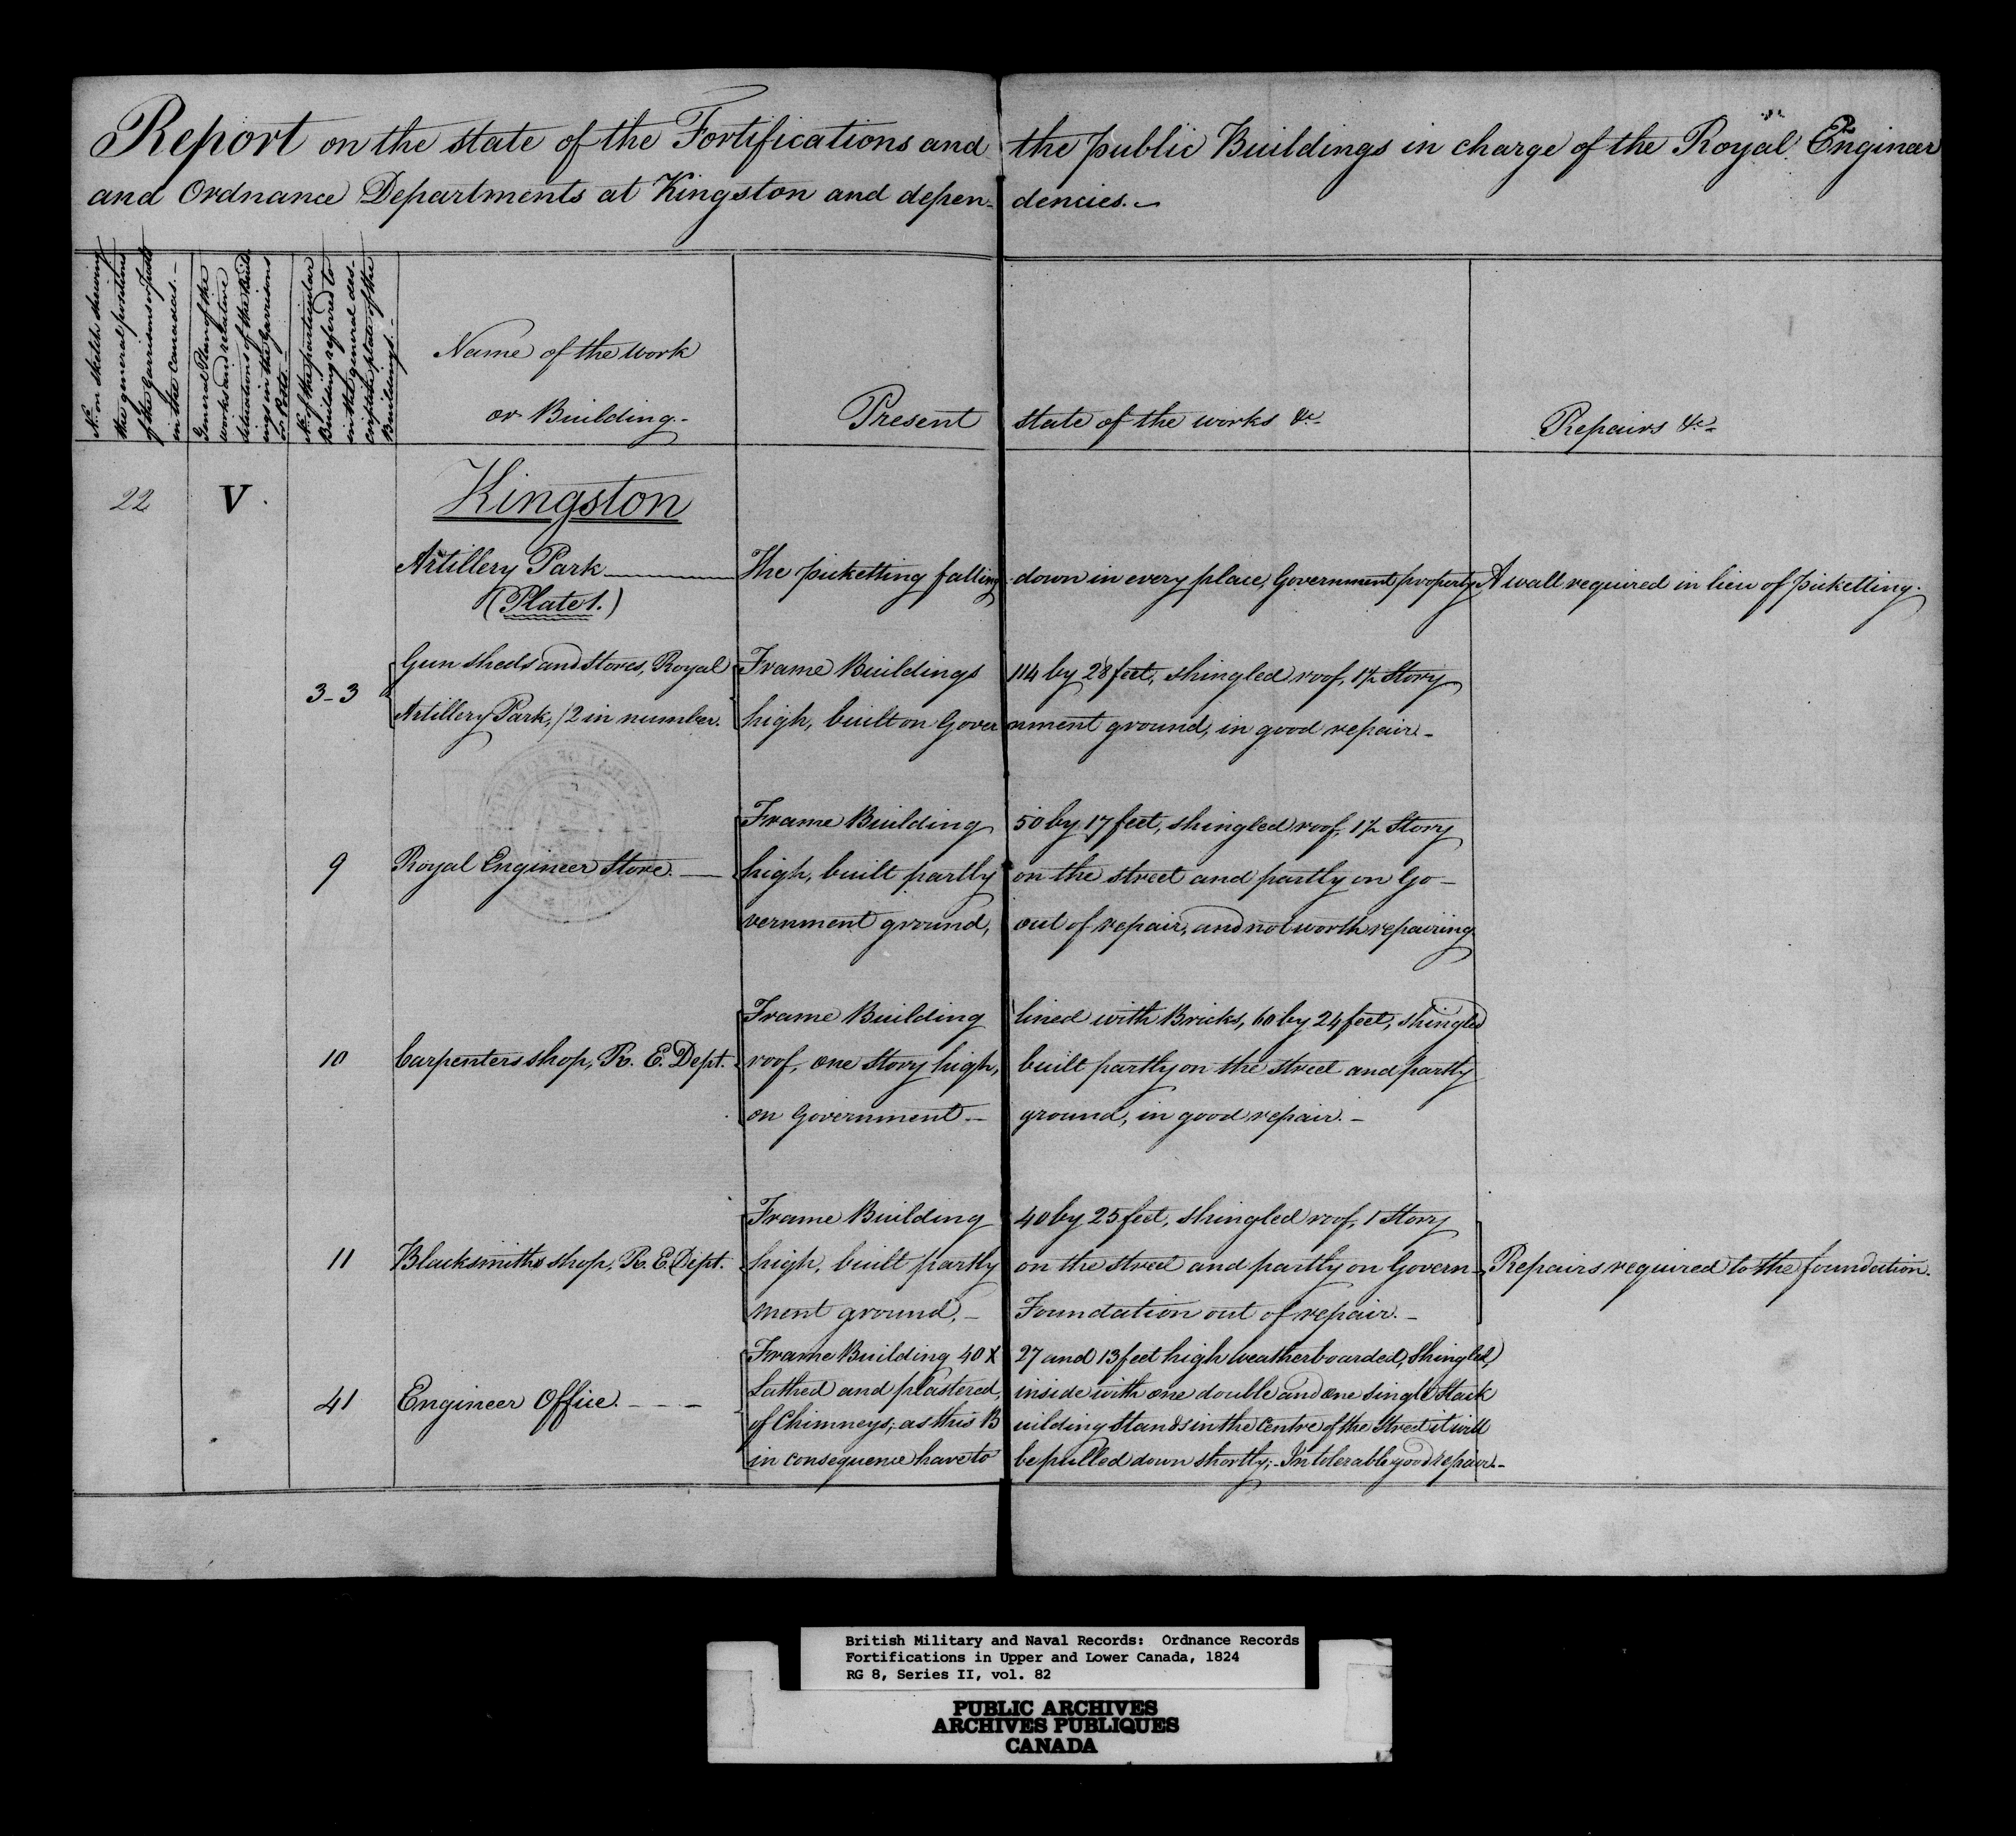 Report on the state of the Fortifications and the public Buildings in charge of the Royal Engineer
and Ordnance Departments at Kingston and depen- dencies.-
2
No. on sketch shewing
the general positions
of the Garrisons or Posts
in the Canadas.-
General Plan of the
works and relative
situations of the Build
ings in the Garrisons
or Posts.-
No. of the particular
Building referred to
in the general des-
criptive plate of the
Buildings.-
Name of the work
or Building.-
Present state of the works &c.-
Repairs &c.-
22 V. Kingston
Artillery Park The picketting falling down in every place, Government property A wall required in lieu of picketting.
(Plate 1.)
Gun sheds and Stores, Royal Frame Buildings 114 by 28 feet, shingled roof, 1½ Story
3-3
Artillery Park, /2 in number. high, built on Gover nment ground, in good repair.-
Frame Building 50 by 17 feet, shingled roof, 1½ Story
9 Royal Engineer Store. high, built partly on the street and partly on Go-
vernment ground, out of repair, and not worth repairing
Frame Building lined with Bricks, 60 by 24 feet, shingled
10 Carpenters shop, R. E. Dept. roof, one Story high, built partly on the street and partly
on Government - ground, in good repair.-
Frame Building 40 by 25 feet, shingled roof, 1 Story
11 Blacksmiths shop, R. E. Dept. high, built partly on the street and partly on Govern- Repairs required to the foundation.
ment ground.- Foundation out of repair.-
Frame Building 40 x 27 and 13 feet high weatherboarded, Shingled,
41 Engineer Office.- - - Lathed and plastered, inside with one double and one single Stack
of Chimneys; as this B uilding Stands in the Centre of the Street it will
in consequence have to be pulled down shortly;- In tolerable good repair.-
British Military and Naval Records: Ordnance Records
Fortifications in Upper and Lower Canada, 1824
RG 8, Series II, vol. 82
PUBLIC ARCHIVES
ARCHIVES PUBLIQUES
CANADA